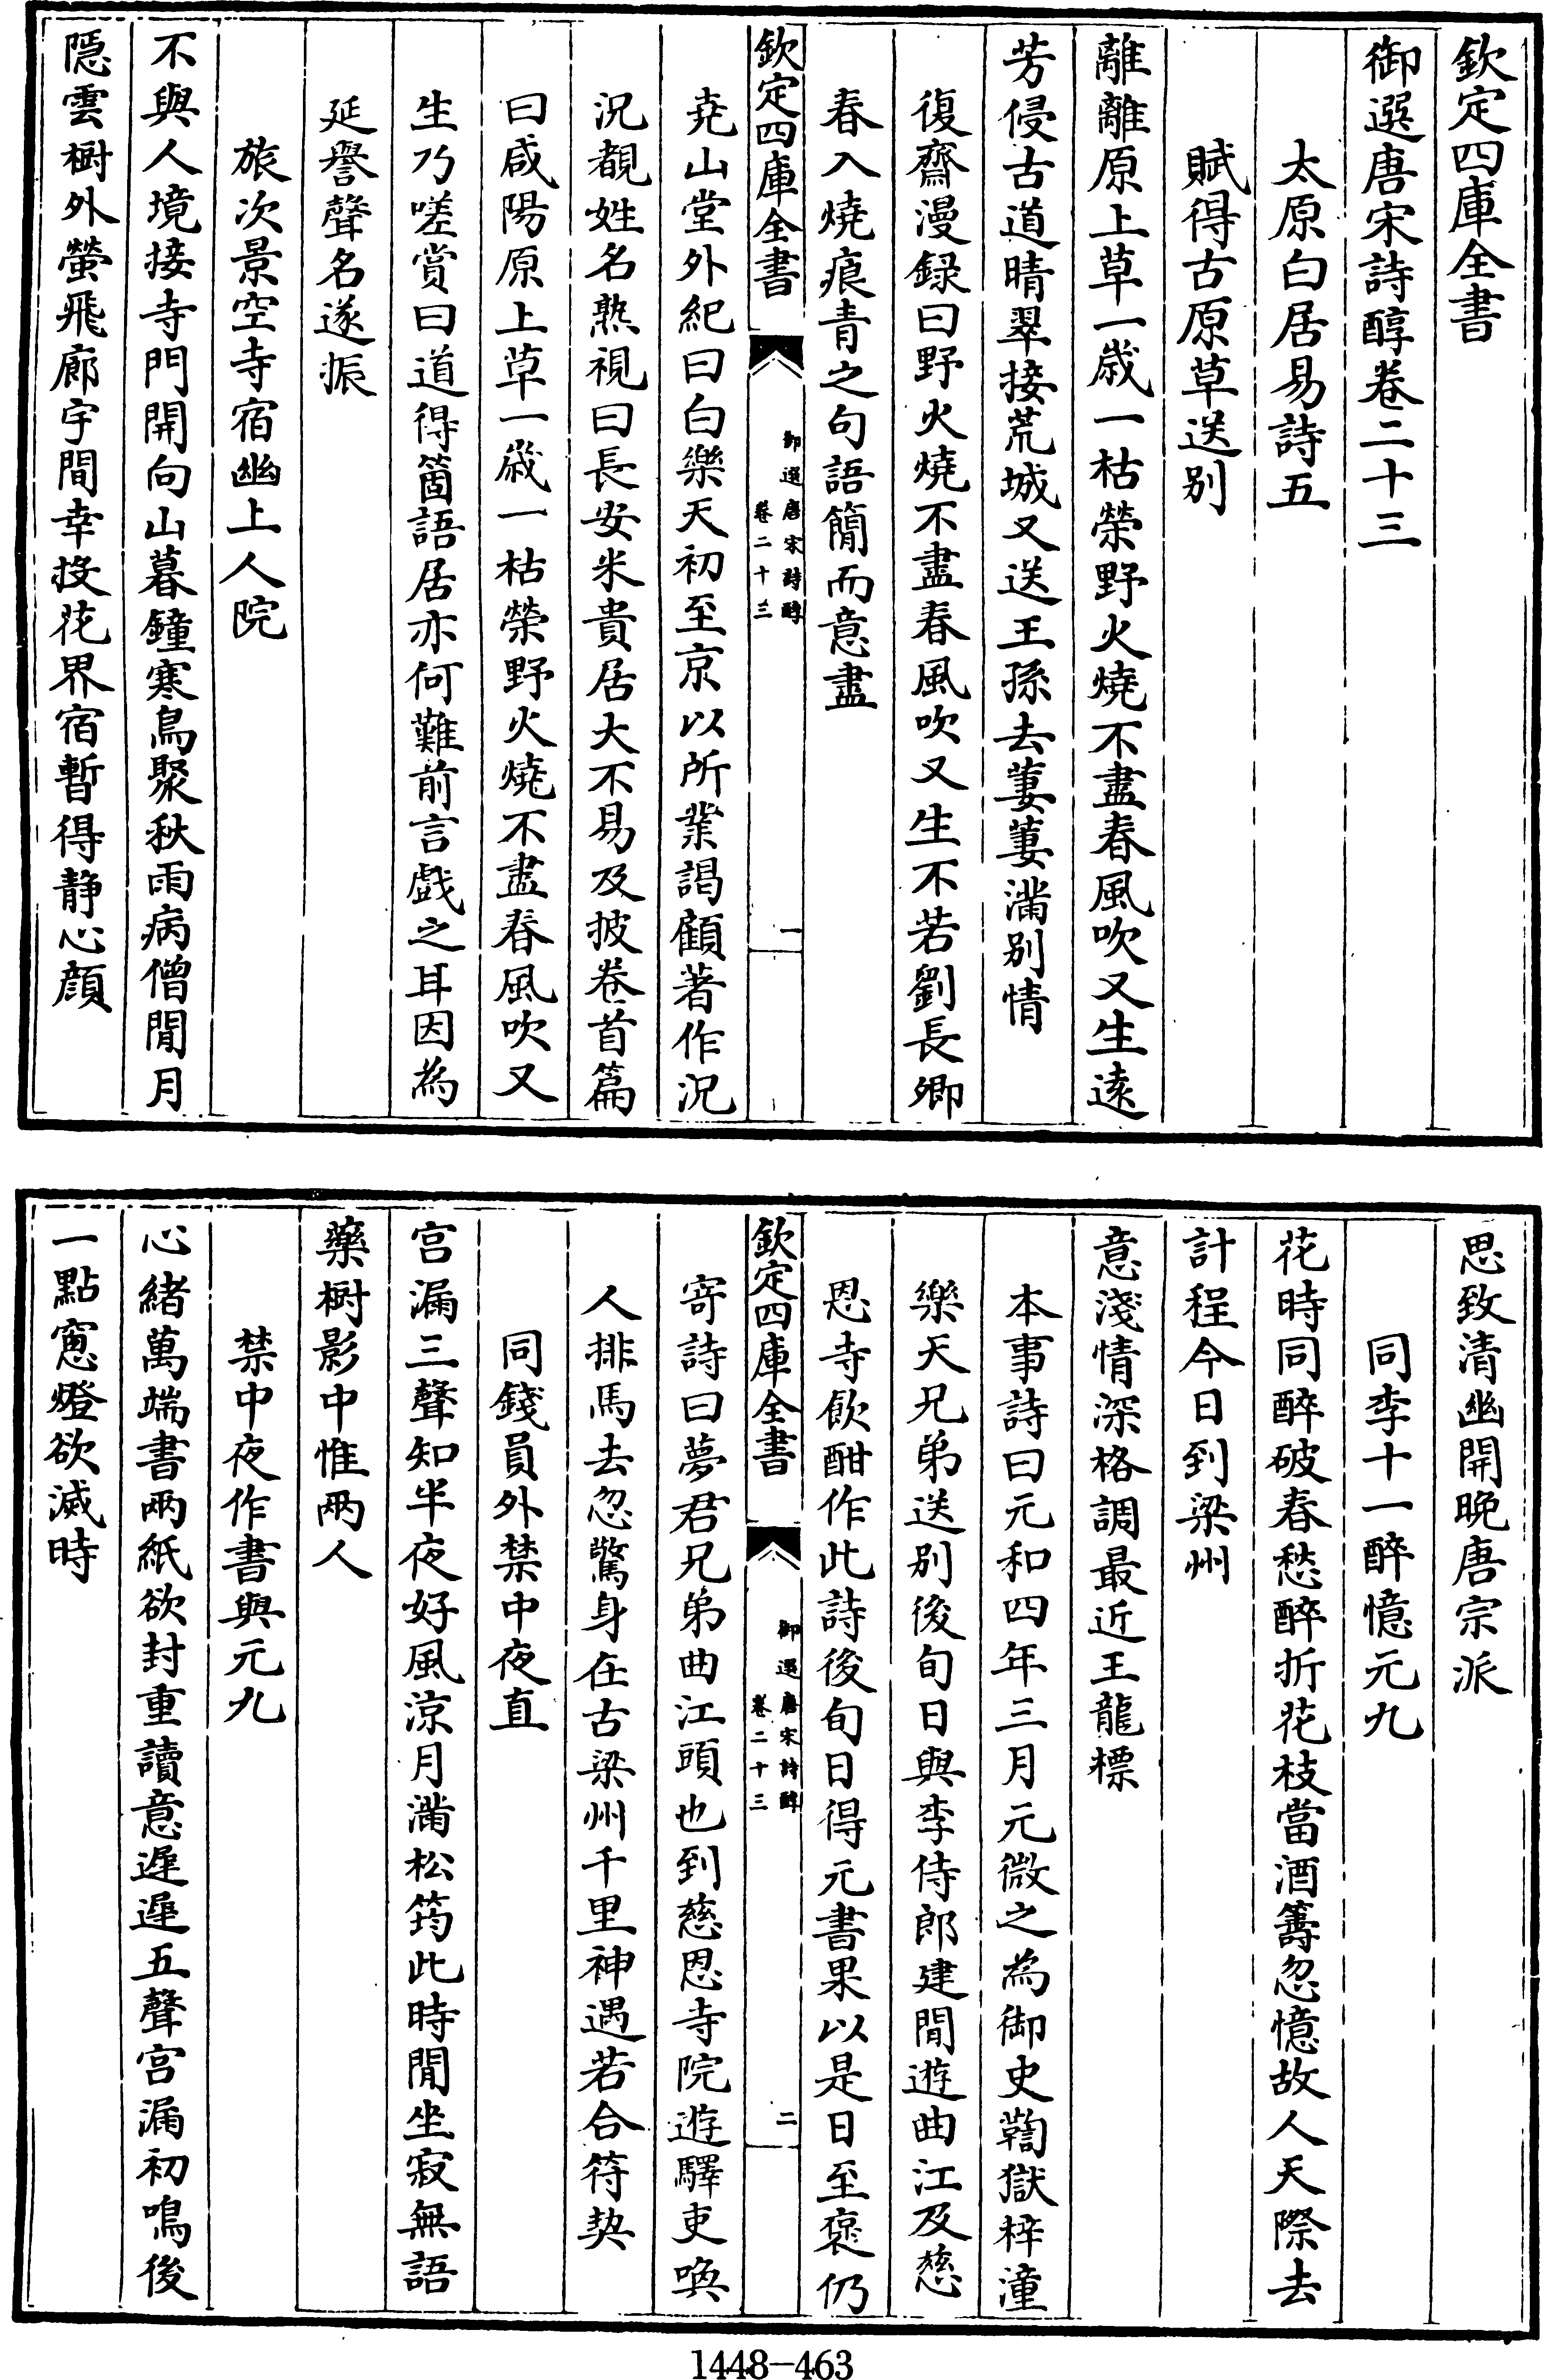 欽定四庫全書
御選唐宋詩醇卷二十三
太原白居易詩五
賦得古原草送别
離離原上草一嵗一枯榮野火燒不盡春風吹又生逺
芳侵古道晴翠接荒城又送王孫去萋萋滿别情
復齋漫録曰野火燒不盡春風吹又生不若劉長卿
春入燒痕青之句語簡而意盡
欽定四庫全書
御選唐宋詩醇
卷二十三
一
堯山堂外紀曰白樂天初至京以所業謁顧著作況
況覩姓名熟視曰長安米貴居大不易及披卷首篇
曰咸陽原上草一嵗一枯榮野火燒不盡春風吹又
生乃嗟賞曰道得箇語居亦何難前言戯之耳因為
延譽聲名遂振
旅次景空寺宿幽上人院
不與人境接寺門開向山暮鐘寒鳥聚秋雨病僧閒月
隱雲樹外螢飛廊宇間幸投花界宿暫得静心顔
思致清幽開晚唐宗派
同李十一醉憶元九
花時同醉破春愁醉折花枝當酒籌忽憶故人天際去
計程今日到梁州
意淺情深格調最近王龍標
本事詩曰元和四年三月元微之為御史鞫獄梓潼
樂天兄弟送别後旬日與李侍郎建閒遊曲江及慈
恩寺飲酣作此詩後旬日得元書果以是日至褒仍
欽定四庫全書
御選唐宋詩醇
卷二十三
二
寄詩曰夢君兄弟曲江頭也到慈恩寺院遊驛吏喚
人排馬去忽驚身在古梁州千里神遇若合符契
同錢員外禁中夜直
宫漏三聲知半夜好風涼月滿松筠此時閒坐寂無語
藥樹影中惟兩人
禁中夜作書與元九
心緒萬端書兩紙欲封重讀意遲遲五聲宫漏初鳴後
一點窻燈欲滅時
1448-463